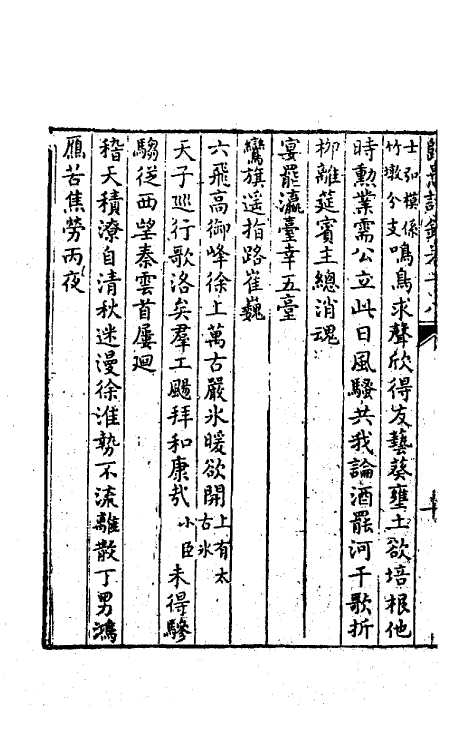 歸愚詩鈔卷十八
士弘模係
竹墩分支
鳴鳥求聲欣得友藝葵壅土欲培根他
時勳業需公立此日風騷共我論酒罷河干歌折
栁離筵賓主總消魂
宴罷瀛臺幸五臺
鸞旗遥指路崔巍
六飛高御峰徐上萬古嚴氷暖欲開
上有太
古氷
天子廵行歌洛矣羣工颺拜和康哉小臣未得驂
騶從西望秦雲首屢廻
稽天積潦自清秋迷漫徐淮勢不流離散丁男鴻
鴈苦焦勞丙夜